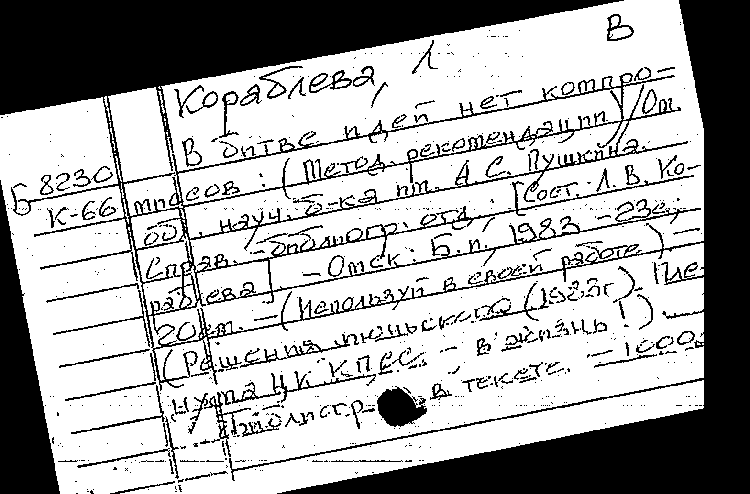 В
Кораблева, Л
В битве идей нет компро-
Б 8230 мисов : (Метод. рекомендации) / Ом.
К-66 обл. науч. б-ка им. А. С. Пушкина.
Справ. - библиогр. отд. ; [Сост. Л. В. Ко-
раблева]. - Омск : Б. и., 1983 - 23 с.;
20 см. - (Используй в своей работе). -
(Решения июньского (1983 г). Пле-
нума ЦК КПСС. - в жизнь!) -
Библиогр. в тексте. - 1000